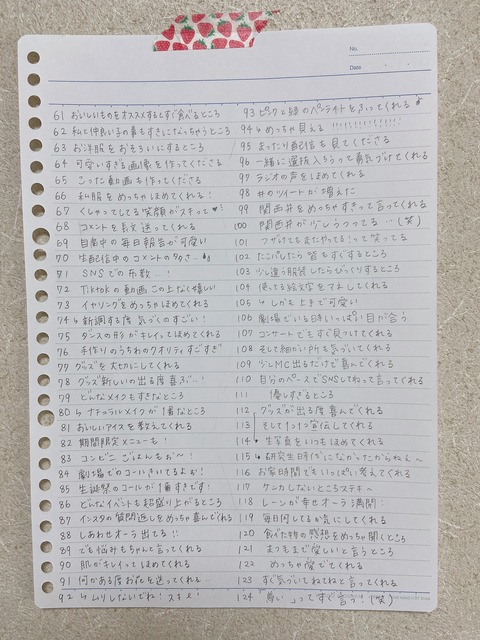 No.
Date
61 おいしいものをオススメするとすぐ食べるところ
62 私と仲良い子の事もすきになっちゃうところ
63 お洋服をおそろいにするところ
64 可愛いすぎる画像を作ってくださる
65 こった動画も作ってくださる
66 私服をめちゃほめてくれる!
67 くしゃってしてる笑顔がスキって
68 コメントを長文送ってくれる
69 自粛中の毎日報告が可愛い
70 生配信中のコメントの多さ…
71 SNSでの布教…!
72 Tiktokの動画この上なく嬉しい
73 イヤリングをめっちゃほめてくれる
74 ↳新調する度気づくのすごい!
75 ダンスの形がキレイってほめてくれる
76 手作りのうちわのクオリティすごすぎ
77 グッズを大切にしてくれる
78 グッズ新しいの出る度喜ぶ…!
79 どんなメイクもすきなところ
80 ↳ナチュラルメイクが1番なところ
81 おいしいアイスを教えてくれる
82 期間限定メニューも!
83 コンビニごはんもぉ〜!
84 劇場でのコールきいてるよぉ!
85 生誕祭のコールが1番すきです!
86 どんなイベントも超盛り上がるところ
87 インスタの質問返しをめっちゃ喜んでくれる
88 しあわせオーラ出てる!!
89 でも悩みもちゃんと言ってくれる
90 肌がキレイってほめてくれる
91 何かある度お花を送ってくれる…
92 ↳ムリしないでね!スキ!
93 ピンクと緑のペンライトをふってくれる
94 ↳めっちゃ見える!!!!!!!!!!!
95 まったり配信も見てくださる
96 一緒に選抜入ろうって勇気づけてくれる
97 ラジオの声をほめてくれる
98 #のツイートが増えた
99 関西弁をめっちゃすきって言ってくれる
100 関西弁が少しうつってる…(笑)
101 フザけてもまたやってる!って笑ってる
102 たこパしたら皆もすぐするところ
103 少し違う服装したらびっくりするところ
104 使ってる絵文字をマネしてくれる
105 ↳しかも上手で可愛い
106 劇場でいる日はいっぱい目が合う
107 コンサートでもすぐ見つけてくれる
108 そして細かい所も気づいてくれる
109 少しMC出るだけで喜んでくれる
110 自分のペースでSNSしてねって言ってくれる
111 優しすぎるところ
112 グッズが出る度喜んでくれる
113 そして1つ1つ宣伝してくれる
114 生写真をいつもほめてくれる
115 ↳研究生時代になかったからねぇ〜
116 お家時間でもいっぱい考えてくれる
117 ケンカしないところステキ〜
118 レーンが幸せオーラ満開!
119 毎日何してるか気にしてくれる
120 食べた物の感想をめっちゃ聞くところ
121 まつ毛まで愛しいと言うところ
122 めっちゃ愛でてくれる
123 すぐ気づいてねてねと言ってくれる
124 ってすぐ言う!(笑)